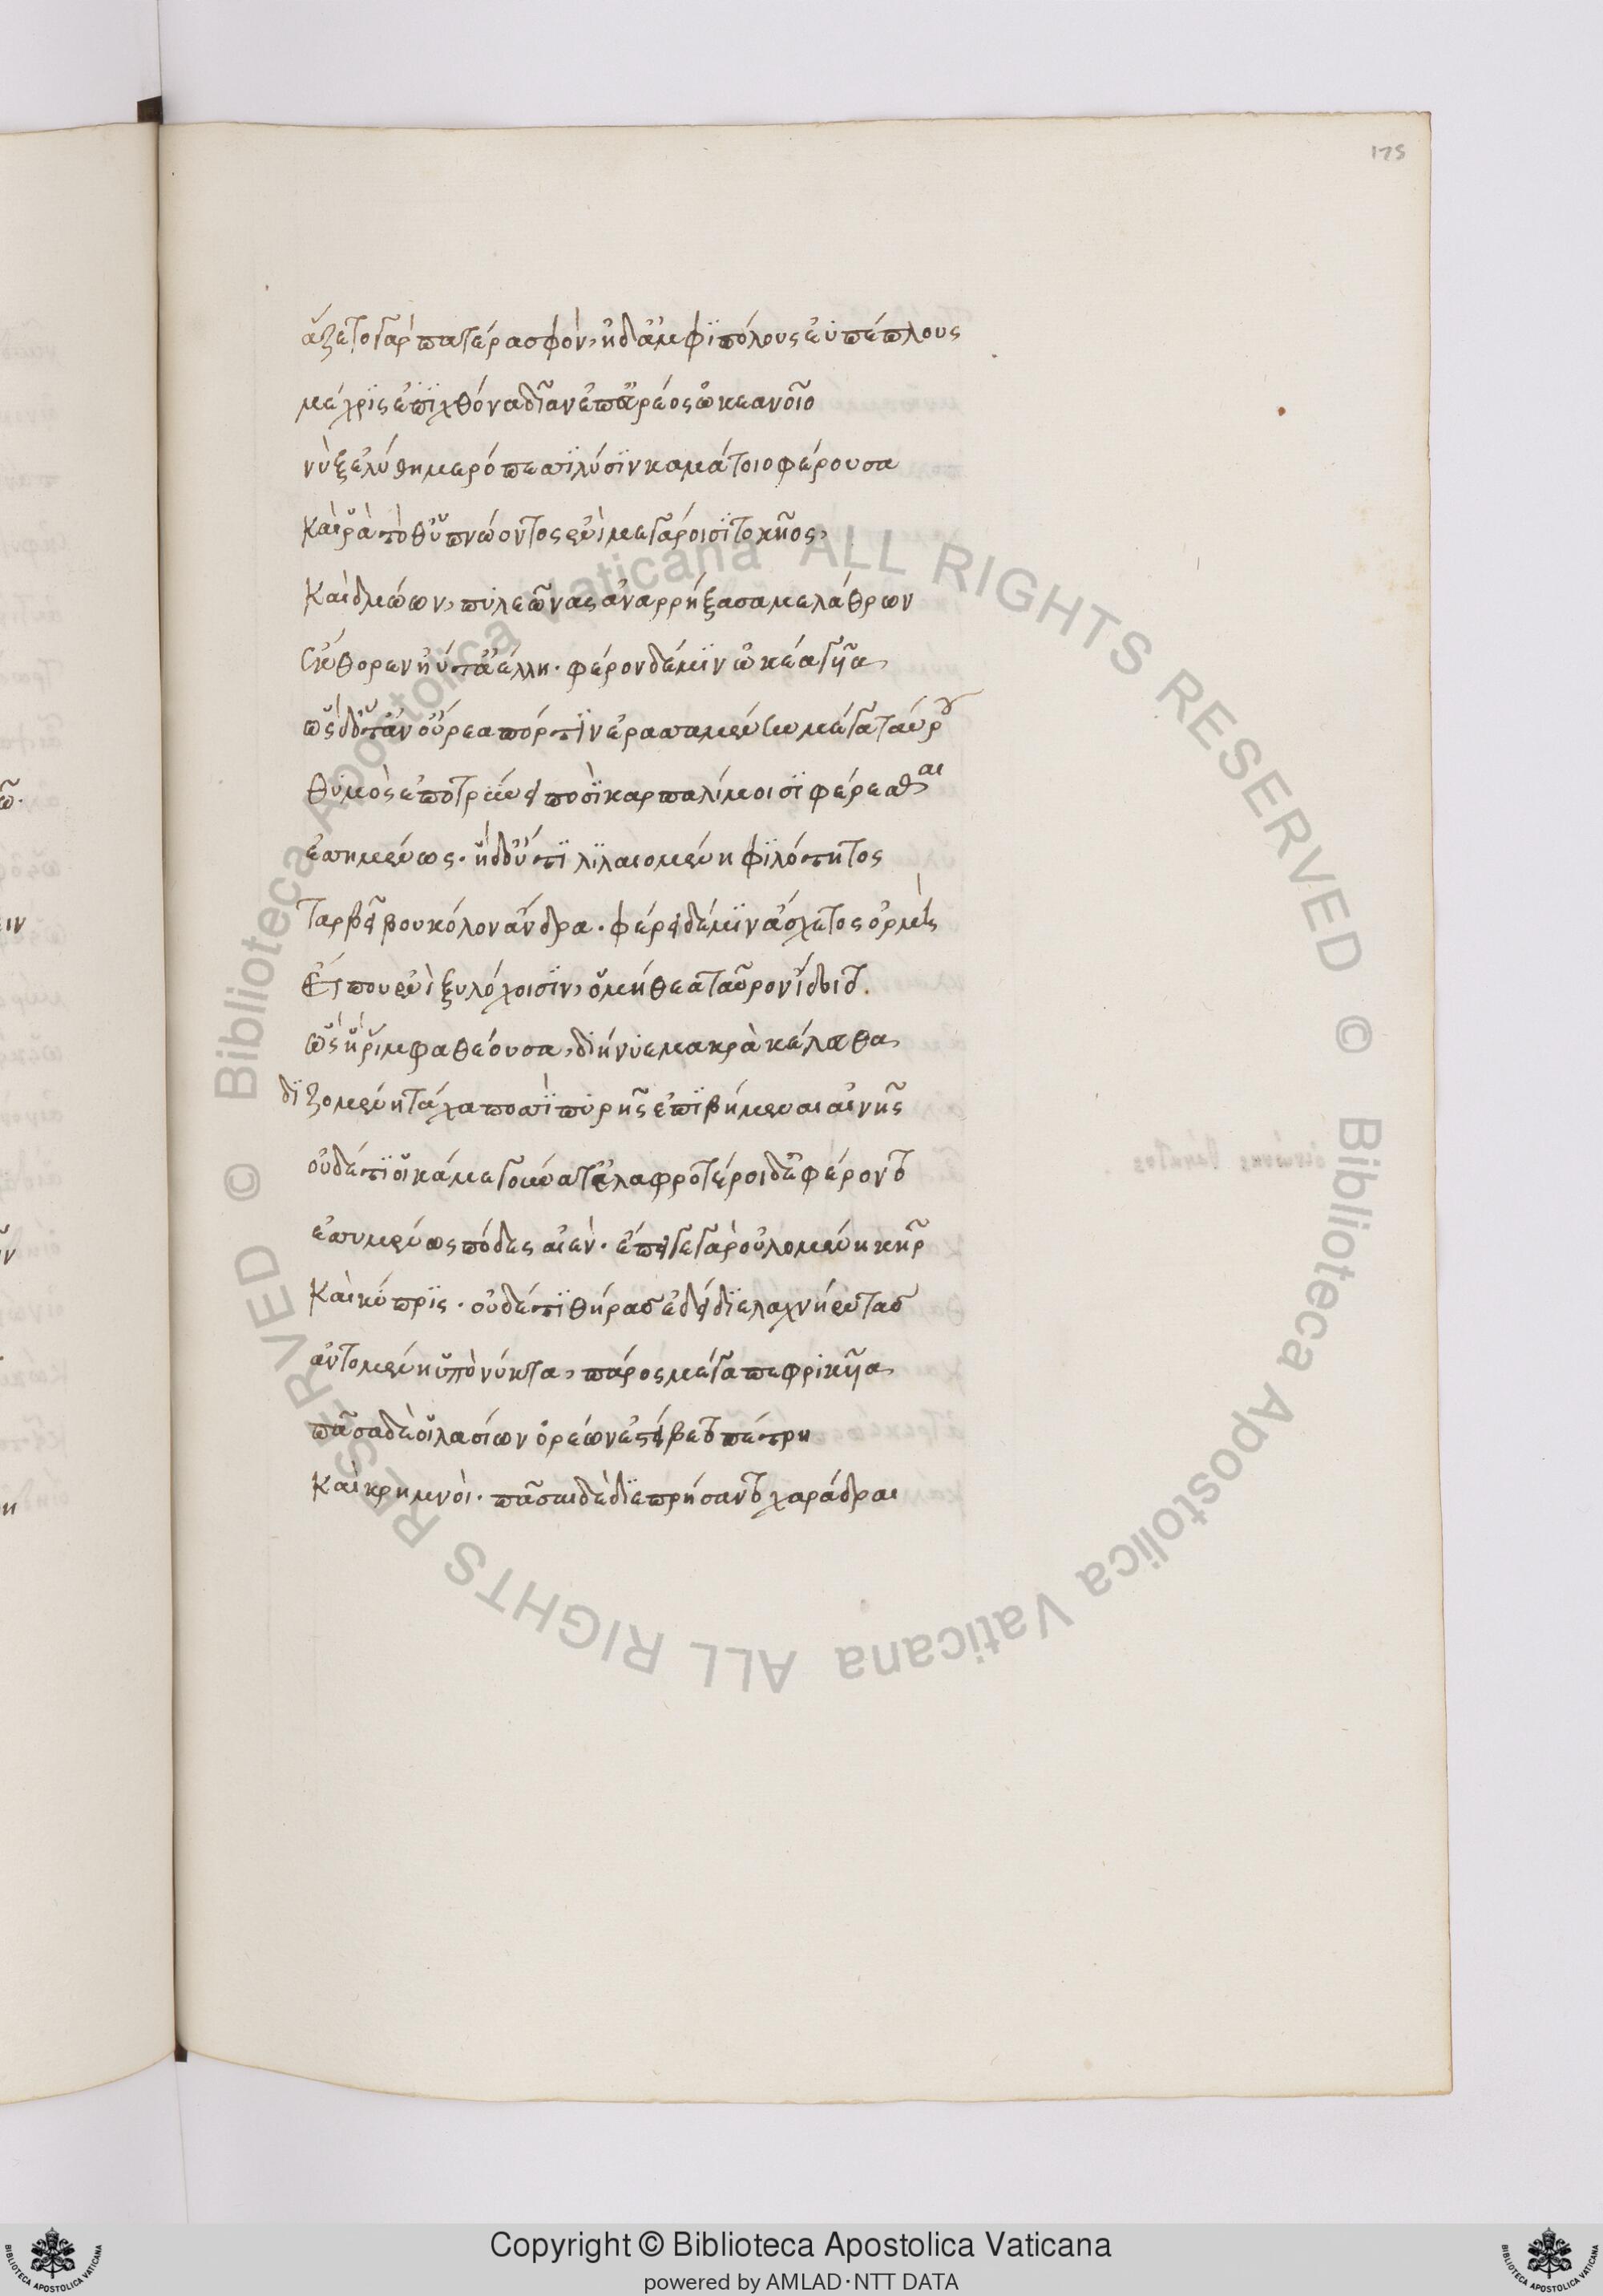 175
ἅζετο γὰρ πατέρα σφὸν, ἠδ' ἀμφϊπόλους εὐπέπλους
μέχρϊς ἐπῒ χθόνα δῖαν ἐπ' εὐρέος ὠκεανοῖο
νὺξ ἐλύθη μερόπεσσϊ λύσϊν καμάτοιο φέρουσα
Καὶ ῥὰ τόθ' ὑπνώοντος ἐνὶ μεγάροισϊ τοκῆος,
Καὶ δμώων, πυλεῶνας ἀναρρήξασα μελάθρων
ἔκθορεν ἠΰτ' ἀέλλη. φέρον δέ μϊν ὠκέα γυῖα,
ὡς δ' ὅτ' ἂν οὔρεα πόρτϊν ἐρασσαμένην μέγα ταύρου
θυμὸς ἐποτρύνει ποσῒ καρπαλίμοισϊ φέρεσθαι
ἐσσυμένως. ἡ δ' οὔτϊ λϊλαιομένη φϊλότητος
Ταρβεῖ βουκόλον ἄνδρα. φέρει δέ μϊν ἄσχετος ὁρμὴ
Εἴ που ἐνὶ ξυλόχοισϊν, ὁμήθεα ταῦρον ἴδοιτο.
ὡς ἡ ῥίμφα θέουσα, διήνυε μακρὰ κέλευθα,
δϊζομένη τάχα ποσσῒ πυρῆς ἐπϊβήμεναι αἰνῆς
οὐδέ τϊ οἱ κάμε γούνατ' ἐλαφρότεροι δ' ἐφέροντο
ἐσσυμένως πόδες αἰέν. ἔπειγε γὰρ οὐλομένη κὴρ
Καὶ κύπρϊς. οὐδέ τϊ θῆρας ἐδείδϊε λαχνήεντας
ἀντομένη ὑπὸ νύκτα, πάρος μέγα πεφρικυῖα,
πᾶσα δέ οἱ λασίων ὀρέων ἐστείβετο πέτρη
Καὶ κρημνοὶ. πᾶσαι δὲ δϊεπρήσσοντο χαράδραι
Copyright © Biblioteca Apostolica Vaticana
powered by AMLAD·NTT DATA